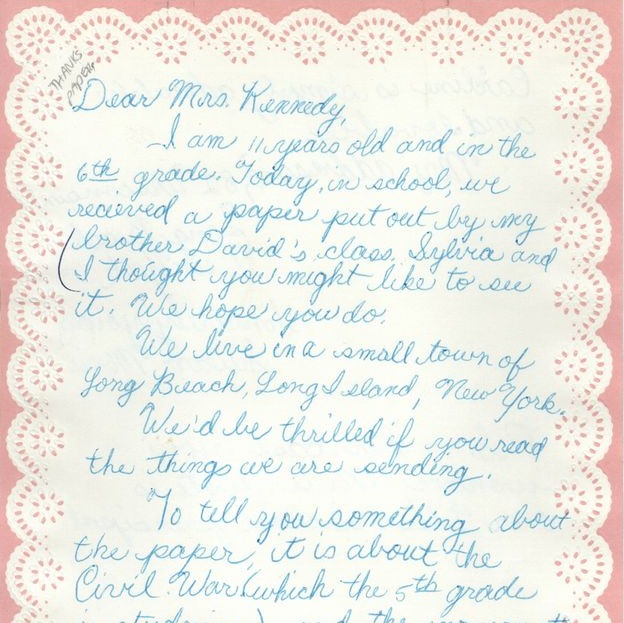 THANKS
PAPER
Dear Mrs. Kennedy,
I am 11 years old and in the
6th grade. Today, in school, we
recieved a paper put out by my
brother David's class. Sylvia and
I thought you might like to see
it. We hope you do.
We live in a small town of
Long Beach, Long Island, New York.
We'd be thrilled if you read
the things we are sending.
To tell you something about
the paper, it is about the
Civil War (which the 5th grade